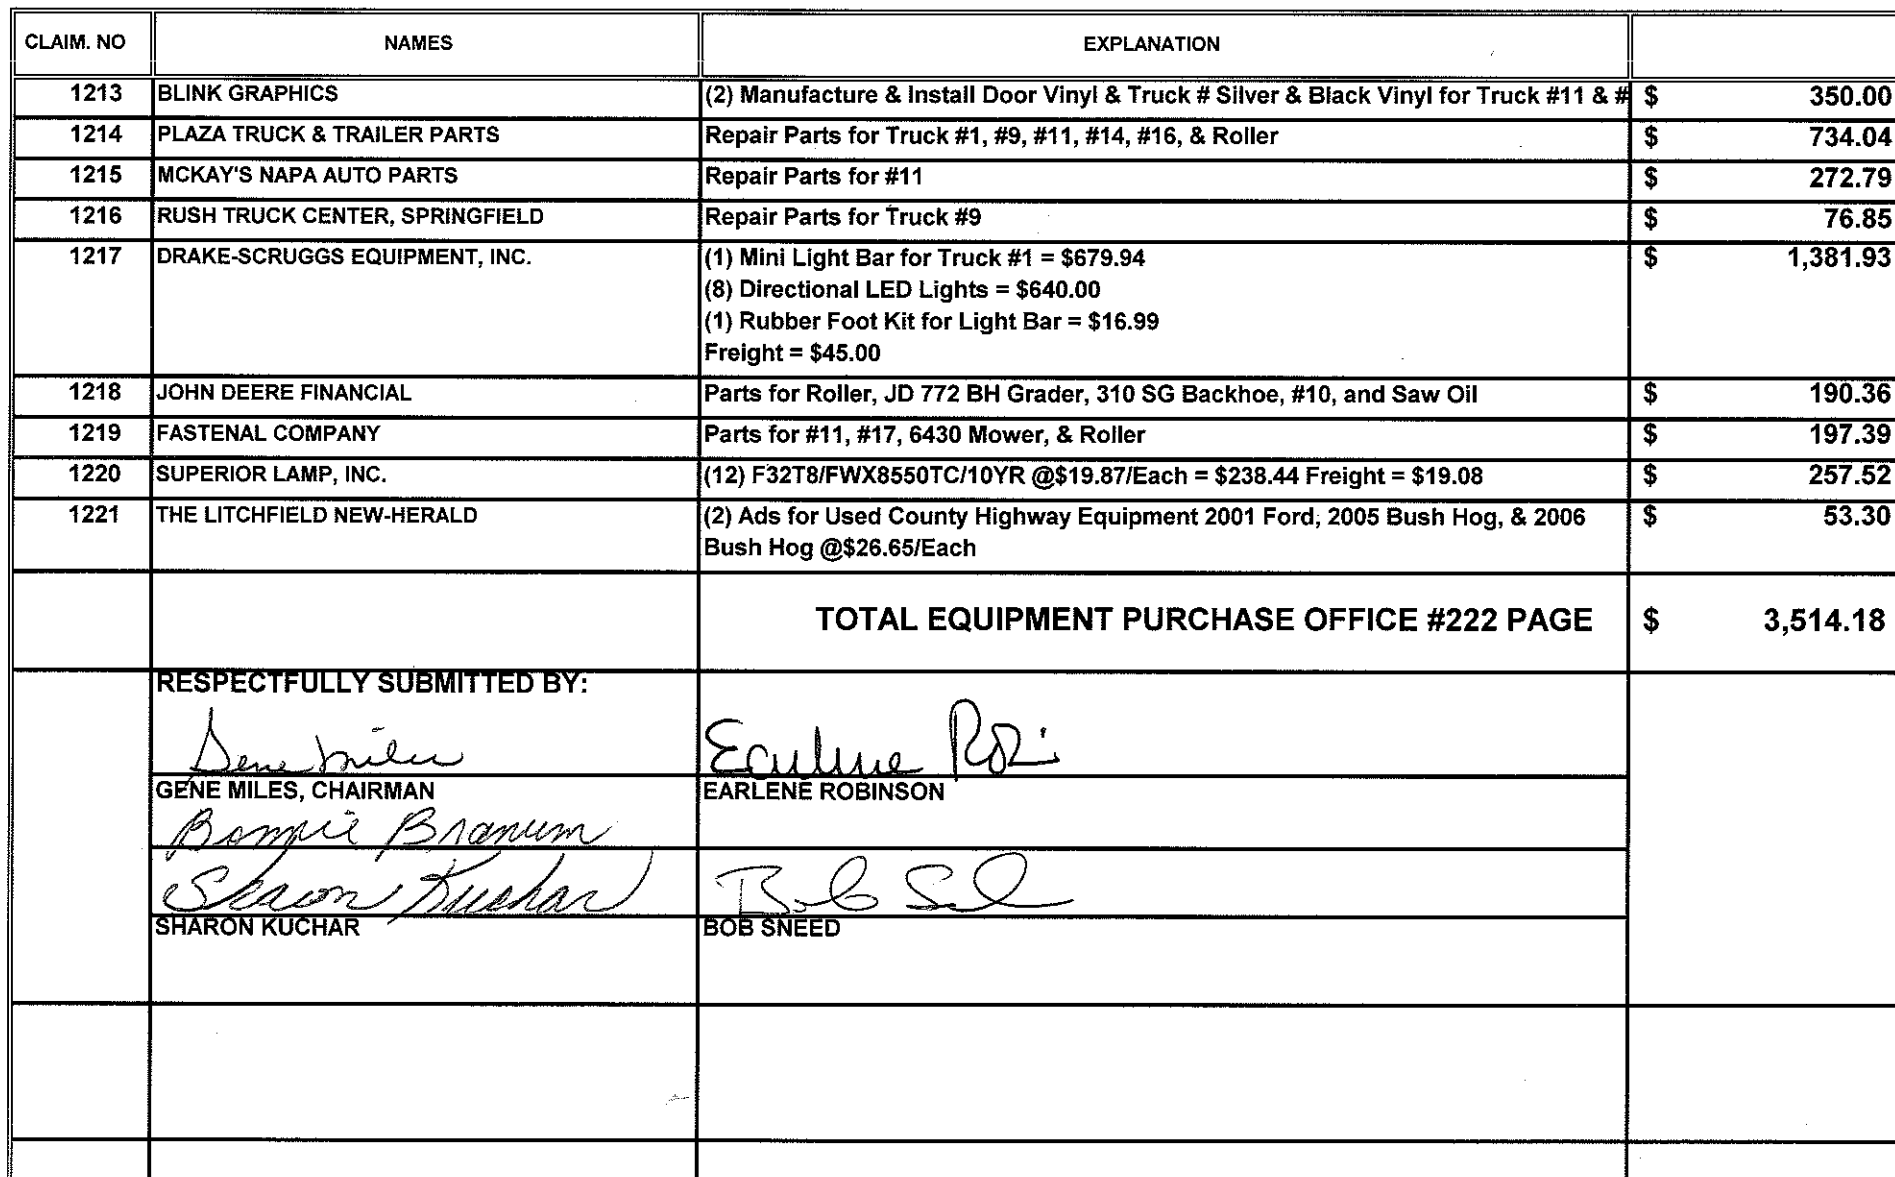 CLAIM. NO NAMES EXPLANATION
1213 BLINK GRAPHICS (2) Manufacture & Install Door Vinyl & Truck # Silver & Black Vinyl for Truck #11 & # $ 350.00
1214 PLAZA TRUCK & TRAILER PARTS Repair Parts for Truck #1, #9, #11, #14, #16, & Roller $ 734.04
1215 MCKAY'S NAPA AUTO PARTS Repair Parts for #11 $ 272.79
1216 RUSH TRUCK CENTER, SPRINGFIELD Repair Parts for Truck #9 $ 76.85
1217 DRAKE-SCRUGGS EQUIPMENT, INC. (1) Mini Light Bar for Truck #1 = $679.94 $ 1,381.93
(8) Directional LED Lights = $640.00
(1) Rubber Foot Kit for Light Bar = $16.99
Freight = $45.00
1218 JOHN DEERE FINANCIAL Parts for Roller, JD 772 BH Grader, 310 SG Backhoe, #10, and Saw Oil $ 190.36
1219 FASTENAL COMPANY Parts for #11, #17, 6430 Mower, & Roller $ 197.39
1220 SUPERIOR LAMP, INC. (12) F32T8/FWX8550TC/10YR @$19.87/Each = $238.44 Freight = $19.08 $ 257.52
1221 THE LITCHFIELD NEW-HERALD (2) Ads for Used County Highway Equipment 2001 Ford, 2005 Bush Hog, & 2006 $ 53.30
Bush Hog @$26.65/Each
TOTAL EQUIPMENT PURCHASE OFFICE #222 PAGE $ 3,514.18
RESPECTFULLY SUBMITTED BY:
Gene Miles Earlene Robi
GENE MILES, CHAIRMAN EARLENE ROBINSON
Bonnie Branum
Sharon Kuchar Bob
SHARON KUCHAR BOB SNEED